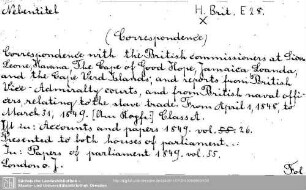 Nebentitel
H. Brit. E 28.
(Correspondence)
Correspondence with the British commissioners at Sierra
Leone, Havana, The Cape of Good Hope, Jamaica, Loanda,
and the Cape Verd Islands; and reports from British
Vice-Admiralty courts, and from British naval offi-
cers, relating to the slave trade. From April 1, 1848, to
March 31, 1849. Class A.
In: Accounts and papers 1849. vol. 26.
Presented to both houses of parliament...
In: of parliament 1849. vol. 55.
London
Fol.